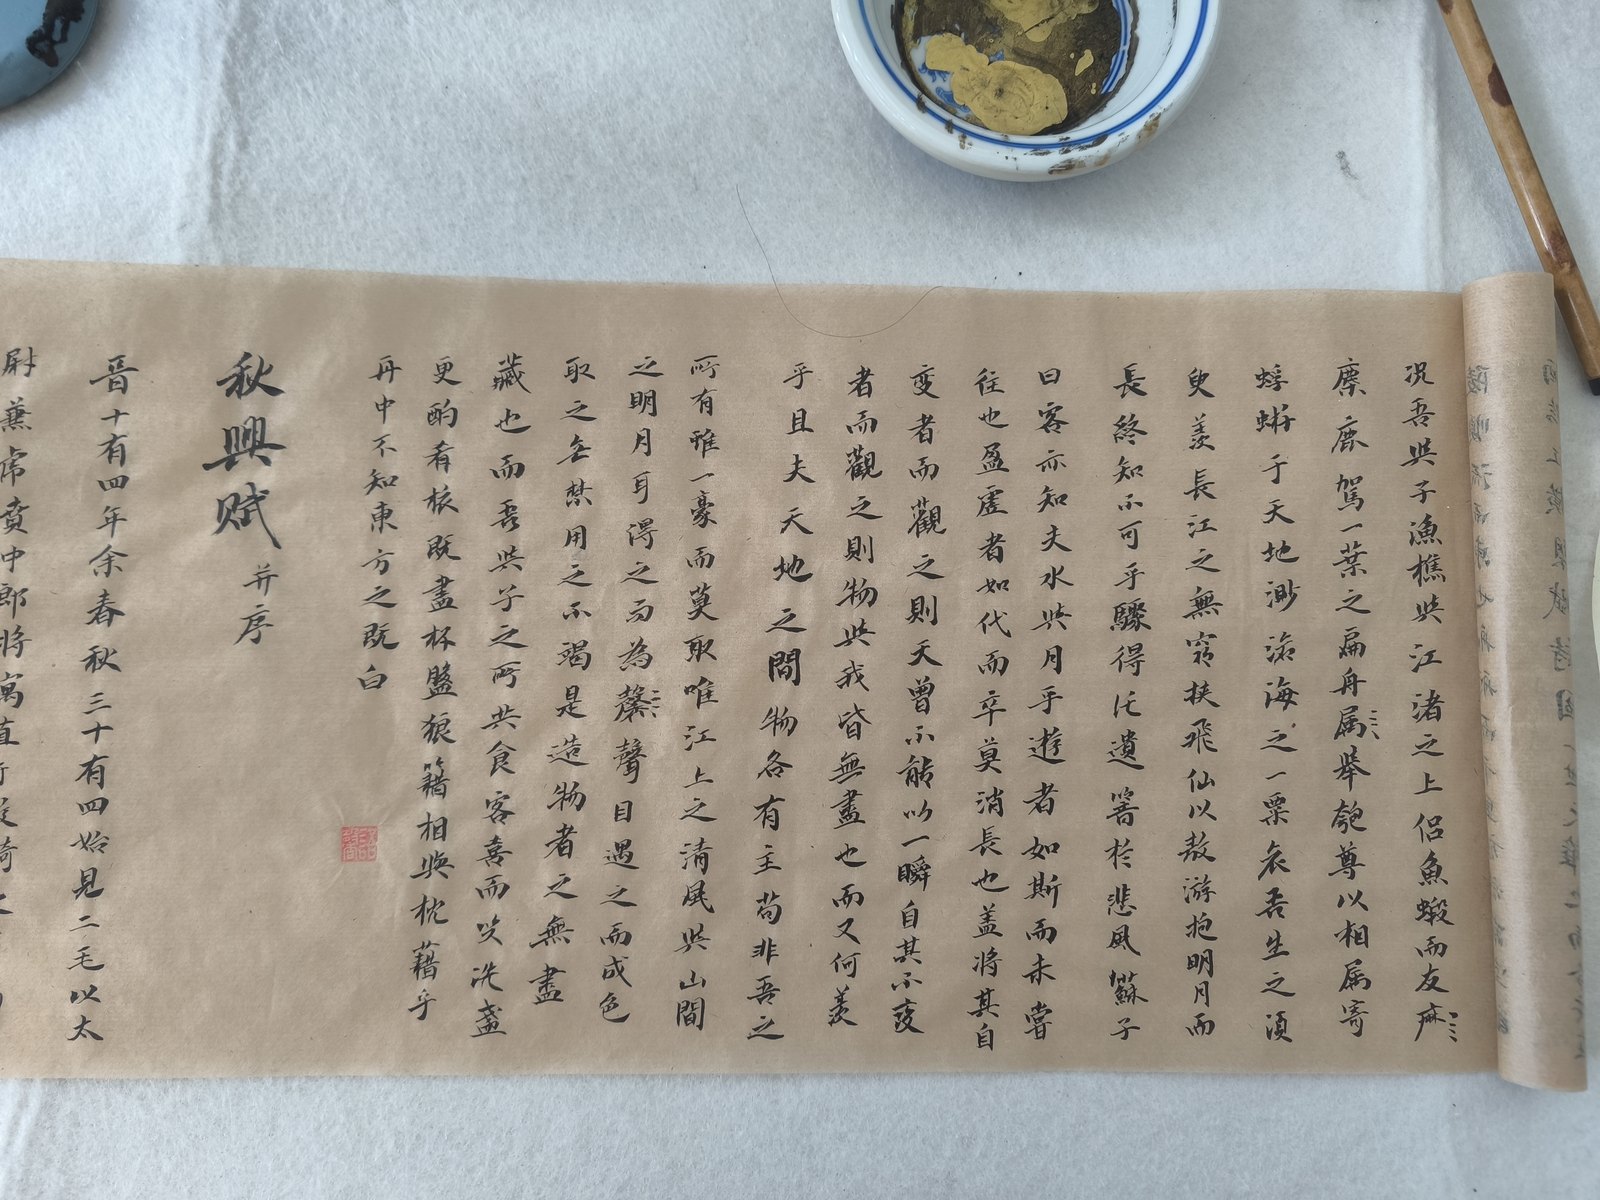 况吾與子漁樵與江渚之上侣魚蝦而友麻
麋鹿駕一葉之扁舟属舉匏尊以相属寄
蜉蝣于天地渺滄海之一粟哀吾生之湏
臾羨長江之無窮挟飛仙以敖游抱明月而
長終知不可乎驟得託遺響於悲風蘇子
曰客亦知夫水與月乎逝者如斯而未嘗
往也盈虚者如代而卒莫消長也盖將其自
变者而觀之則天曾不能以一瞬自其不变
者而觀之則物與我皆無盡也而又何羨
乎且夫天地之間物各有主苟非吾之
所有雖一豪而莫取唯江上之清風與山間
之明月耳得之而為聲目遇之而成色
取之無禁用之不竭是造物者之無盡
藏也而吾與子之所共食客喜而笑洗盞
更酌肴核既盡杯盤狼籍相與枕藉乎
舟中不知東方之既白
秋興賦并序
晉十有四年余春秋三十有四始見二毛以太
尉兼虎賁中郎將寓直